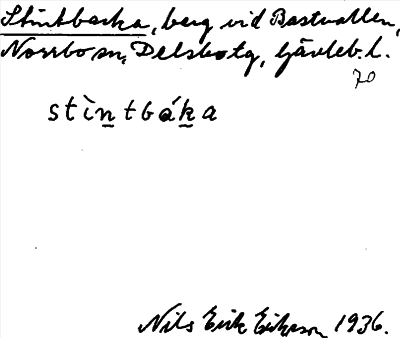 Stintbacka, berg vid Bastvallen,
Norrbo sn, Delsbo tg, Gävleb. l.
70
stìn̲tbák̲a
Nils Erik Eriksson 1936.